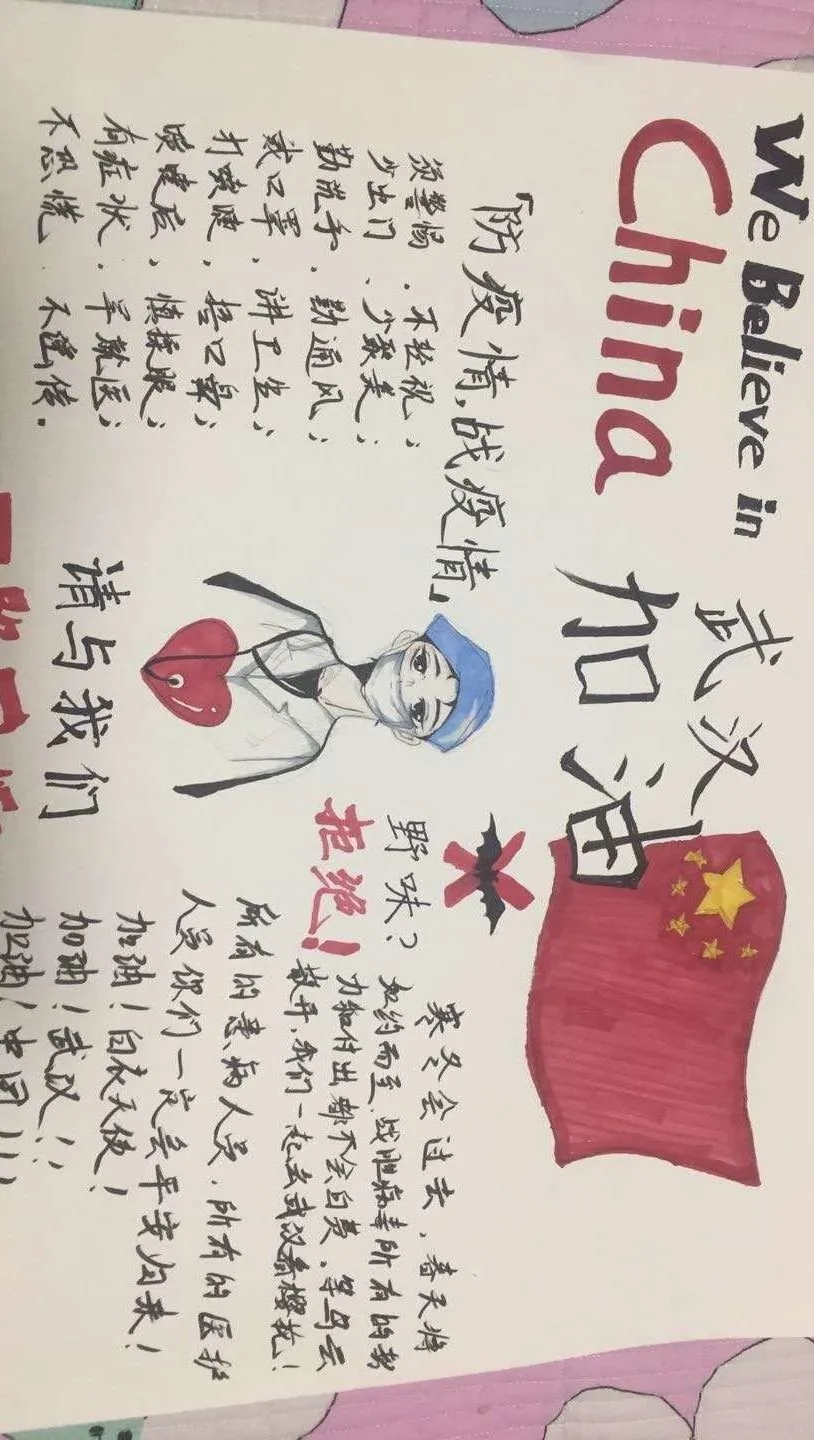 We Believe in
China
武汉
加油
「防疫情,战疫情」
须警惕,不轻视;
少出门、少聚集;
勤洗手,勤通风;
戴口罩,讲卫生;
打喷嚏,捂口鼻;
喷嚏后,慎揉眼;
有症状,早就医;
不恐慌,不谣传。
请与我们
野味?
拒绝!
寒冬会过去,春天将
如约而至,战胜病毒所有的努
力和付出都不会白费。等乌云
散开,我们一起去武汉看樱花!
所有的患病人员,所有的医护
人员你们一定会平安归来!
加油!白衣天使!
加油!武汉!!
加油!中国!!!